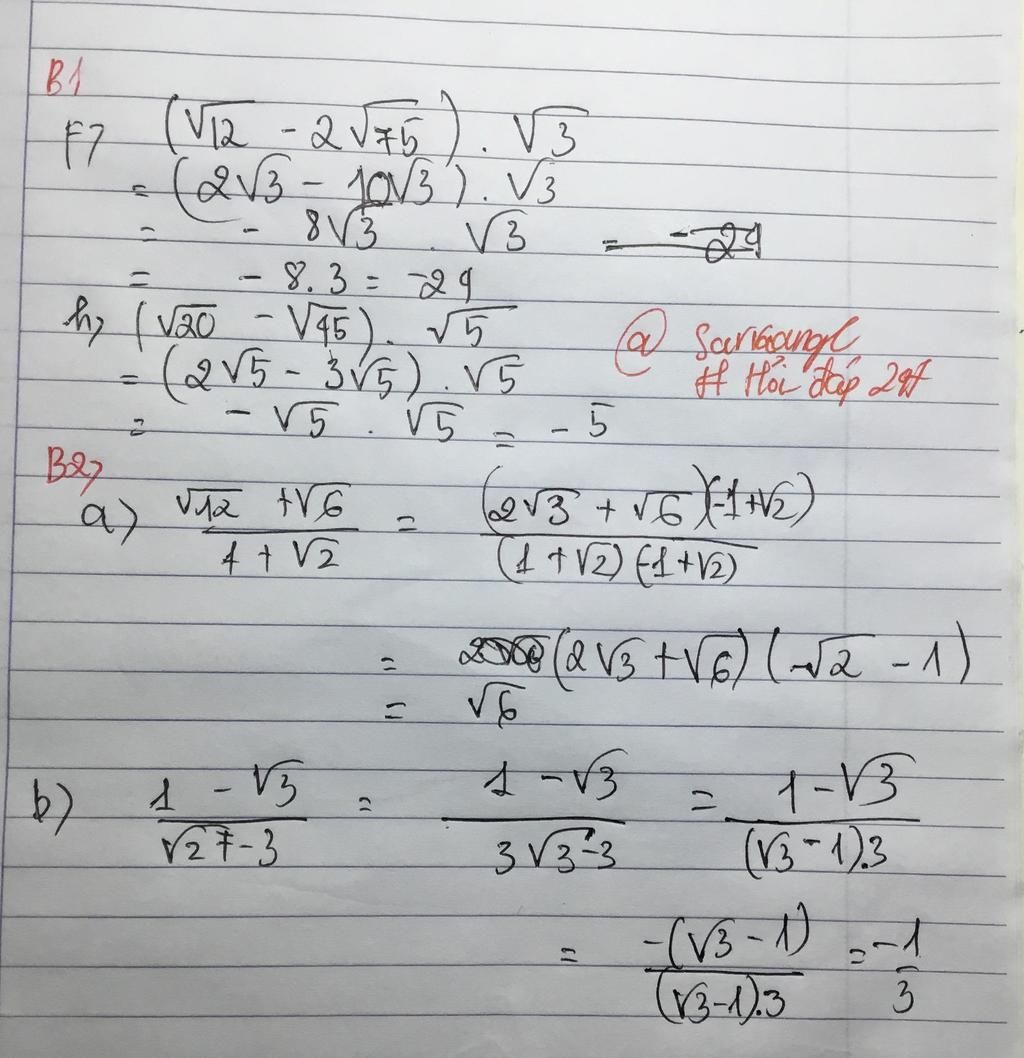 B1
f) (√12 - 2√75) . √3
= (2√3 - 10√3) . √3
= - 8√3 . √3 = -24
= - 8.3 = -24
h) (√20 - √45) . √5
= (2√5 - 3√5) . √5
= - √5 . √5 = - 5
@
# Hỏi đáp 247
B2)
a) (√12 + √6)/(1 + √2) = ((2√3 + √6)(-1+√2))/((1 + √2)(-1+√2))
= (2√3 + √6)(√2 - 1)
= √6
b) (1 - √3)/(√27 - 3) = (1 - √3)/(3√3 - 3) = (1 - √3)/((√3 - 1).3)
= (-(√3 - 1))/((√3 - 1).3) = -1/3